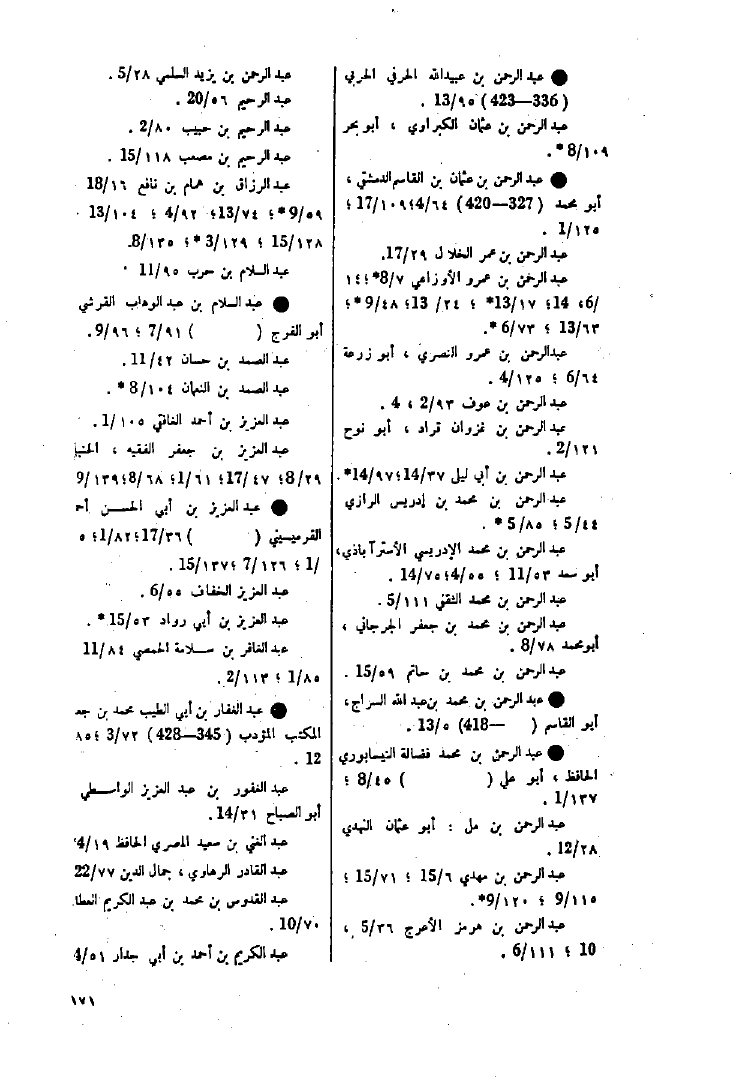 ● عبد الرحمن بن عبيدالله الحرفي الحربي
(336—423) ٩٥/13 .
عبد الرحمن بن عثمان الكبراوي ، أبو بحر
١٠٩/8 *.
● عبد الرحمن بن عثمان بن القاسم الدمشتي ،
أبو محمد (327—420) ٦٤/4؛ ١٠٩/17 ؛
١٢٥/1 .
عبد الرحمن بن عمر الخلال ٢٩/17.
عبد الرحمن بن عمرو الأوزاعي ٧/8*؛ ١٤
/6، 14؛ ١٧/13* ؛ ٢٤ /13؛ ٤٨/9 *؛
٦٣/13 ؛ ٧٣/6 *.
عبدالرحمن بن عمرو النصري ، أبو زرعة
٦٤/6 ؛ ١٢٥/4 .
عبد الرحمن بن عوف ٩٣/2 ، 4 .
عبد الرحمن بن غزوان قراد ، أبو نوح
١٢١/2.
عبد الرحمن بن أبي ليل ٣٧/14؛ ٩٧/14*.
عبد الرحمن بن محمد بن إدريس الرازي
٤٤/5 ؛ ٨٥/5 * .
عبد الرحمن بن محمد الإدريسي الأسترآباذي،
أبو سعد ٥٣/11 ؛ ٥٥/4؛ ٧٥/14 .
عبد الرحمن بن محمد الثقفي ١١١/5 .
عبد الرحمن بن محمد بن جعفر الجرجاني ،
أبومحمد ٧٨/8 .
عبد الرحمن بن محمد بن حاتم ٥٩/15 .
● عبد الرحمن بن محمد بن عبد الله السراج،
أبو القاسم ( —418) ٥/13 .
● عبد الرحمن بن محمد فضالة النيسابوري
الحافظ ، أبو علي ( ) ٤٥/8 ؛
١٣٧/1 .
عبد الرحمن بن مل : أبو عثمان النهدي
٢٨/12 .
عبد الرحمن بن مهدي ٦/15 ؛ ٧١/15 ؛
١١٥/9 ؛ ١٢٠/9*.
عبد الرحمن بن هرمز الأعرج ٣٦/5 ،
10 ؛ ١١١/6 .
عبد الرحمن بن يزيد السلمي ٢٨/5 .
عبد الرحيم ٥٦/20 .
عبد الرحيم بن حبيب ٨٠/2 .
عبد الرحيم بن مصعب ١١٨/15 .
عبد الرزاق بن همام بن نافع ١٦/18
٥٩/9* ؛ ٧٤/13؛ ٩٢/4 ؛ ١٠٤/13
١٢٨/15 ؛ ١٢٩/3 *؛ ١٣٥/8.
عبد السلام بن حرب ٩٥/11
● عبد السلام بن عبد الوهاب القرشي
أبو الفرج ( ) ٩١/7 ؛ ٩٦/9.
عبد الصمد بن حسان ٤٢/11 .
عبد الصمد بن النعمان ١٠٤/8 * .
عبد العزيز بن أحمد الغافقي ١٠٥/1 .
عبد العزيز بن جعفر الفقيه ، الحنبلي
٢٩/8؛ ٤٧/17؛ ٦١/1؛ ٦٨/8؛ ١٣٩/9
● عبد العزيز بن أبي الحسن أحمد
القرميسيني ( ) ٣٦/17؛ ٨٢/1؛ ٥
/1 ؛ ١٢٦/7 ؛ ١٣٧/15 .
عبد العزيز الخفاف ٥٥/6 .
عبد العزيز بن أبي رواد ٥٣/15 * .
عبد الغافر بن سلامة الحمصي ٨٤/11
٨٥/1 ؛ ١١٣/2.
● عبد الغفار بن أبي الطيب محمد بن جعفر
المكتب المؤدب (345—428) ٧٢/3 ؛ ٨٥
12 .
عبد الغفور بن عبد العزيز الواسطي
أبو الصباح ٣١/14.
عبد الغني بن سعيد المصري الحافظ ١٩/4
عبد القادر الرهاوي ، جمال الدين ٧٧/22
عبد القدوس بن محمد بن عبد الكريم العطار
٧٠/10 .
عبد الكريم بن أحمد بن أبي جدار ٥١/4
١٧١